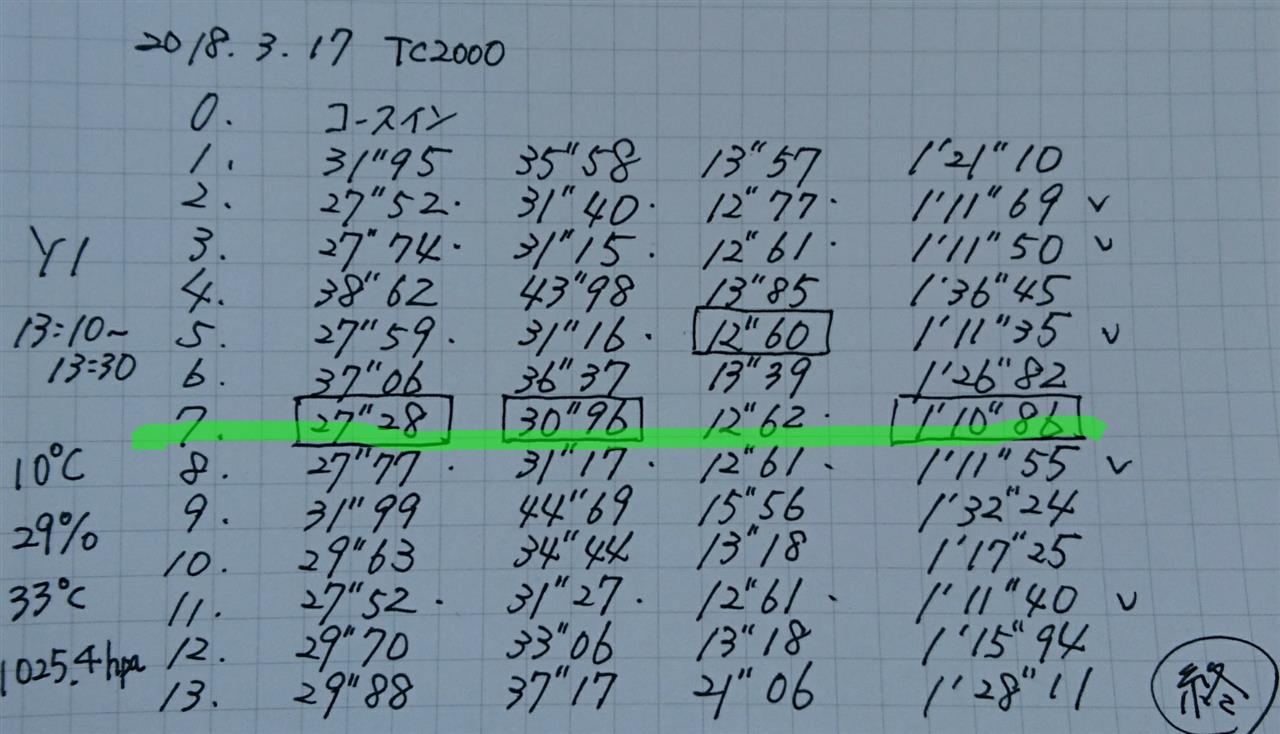 2018.3.17 TC2000
0. コースイン
1. 31"95 35"58 13"57 1'21"10
2. 27"52. 31"40. 12"77. 1'11"69 v
Y1 3. 27"74. 31"15. 12"61. 1'11"50 v
4. 38"62 43"98 13"85 1'36"45
13:10~ 5. 27"59. 31"16. 12"60 1'11"35 v
13:30 6. 37"06 36"37 13"39 1'26"82
7. 27"28 30"96 12"62. 1'10"86
10°C 8. 27"77. 31"17. 12"61. 1'11"55 v
9. 31"99 44"69 15"56 1'32"24
29% 10. 29"63 34"44 13"18 1'17"25
33°C 11. 27"52. 31"27. 12"61. 1'11"40 v
12. 29"70 33"06 13"18 1'15"94
1025.4hpa 13. 29"88 37"17 21"06 1'28"11
終